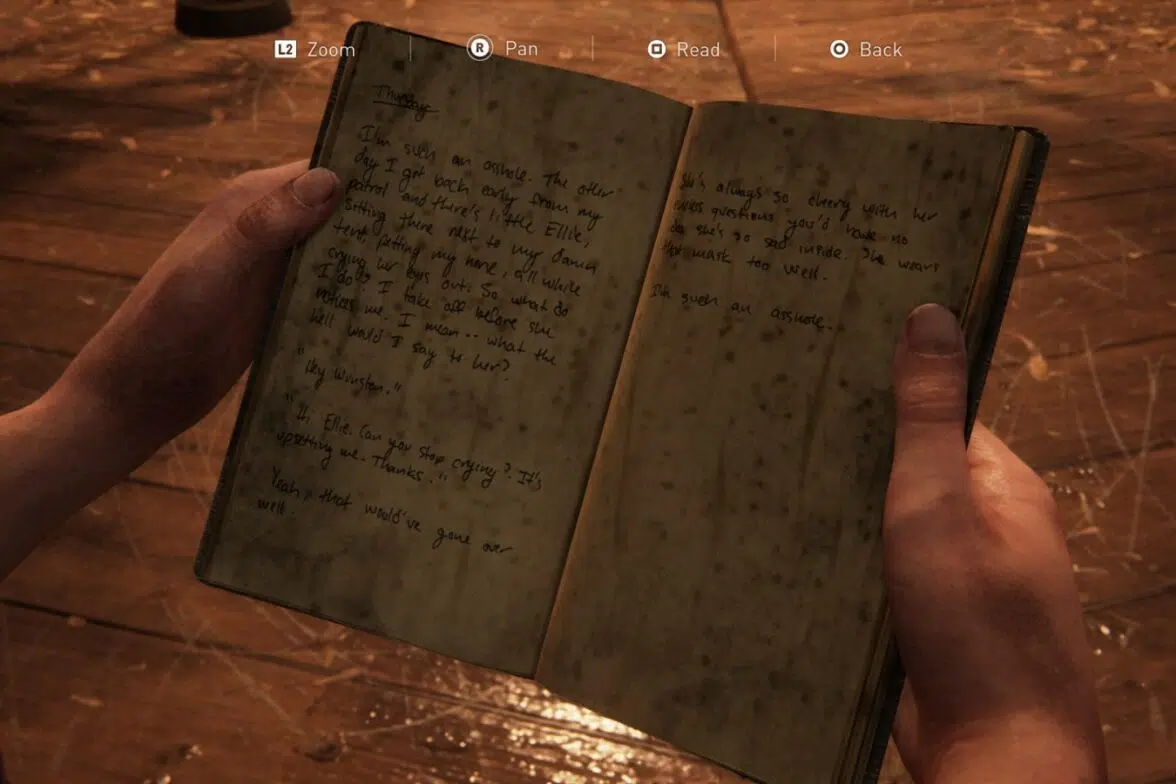 L2 Zoom
R Pan
Read
Back
Thursday
I'm such an asshole. The other
day I get back early from my
patrol and there's little Ellie,
sitting there next to my damn
tent, petting my horse, all while
crying her eyes out. So what do
I do? I take off before she
notices me. I mean.. what the
hell would I say to her?
"Hey Winston."
"Hi Ellie. Can you stop crying? It's
upsetting me. Thanks."
Yeah, that would've gone over
well.
She's always so cheery with her
endless questions you'd have no
idea she's so sad inside. She wears
that mask too well.
I'm such an asshole.